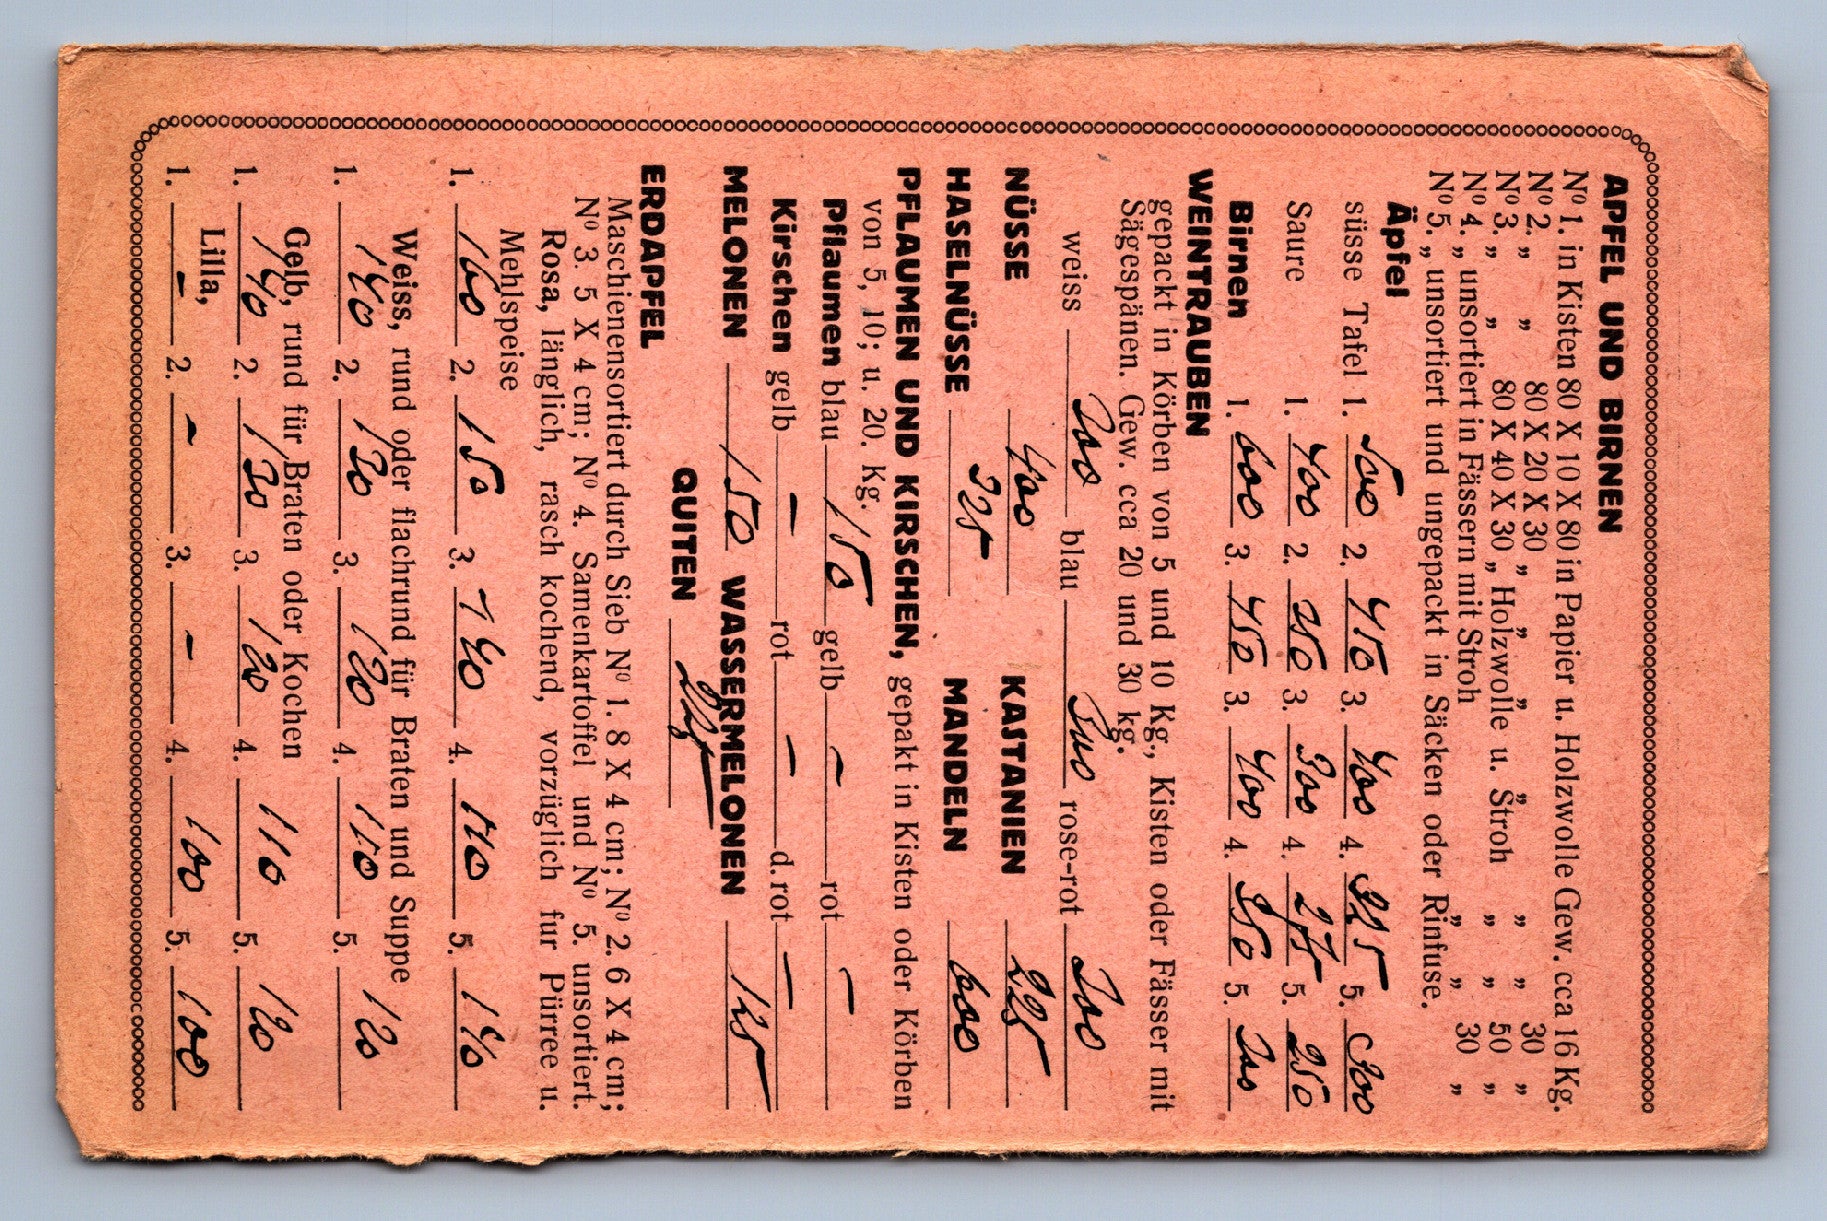 APFEL UND BIRNEN
Nº 1. in Kisten 80 X 10 X 80 in Papier u. Holzwolle Gew. cca 16 Kg.
Nº 2. „ „ 80 X 20 X 30 „ „ „ „ „ 30 „
Nº 3. „ „ 80 X 40 X 30 „ Holzwolle u. Stroh „ „ 50 „
Nº 4. „ unsortiert in Fässern mit Stroh „ „ 30 „
Nº 5. „ unsortiert und ungepackt in Säcken oder Rinfuse.
Äpfel
süsse Tafel 1. 500 2. 450 3. 400 4. 325 5. 300
Saure 1. 400 2. 350 3. 300 4. 275 5. 250
Birnen 1. 600 3. 450 3. 400 4. 350 5. 300
WEINTRAUBEN
gepackt in Körben von 5 und 10 Kg., Kisten oder Fässer mit
Sägespänen. Gew. cca 20 und 30 kg.
weiss 300 blau 300 rose-rot 300
NÜSSE 400 KASTANIEN 225
HASELNÜSSE 325 MANDELN 600
PFLAUMEN UND KIRSCHEN, gepakt in Kisten oder Körben
von 5, 10; u. 20. Kg.
Pflaumen blau 150 gelb — rot —
Kirschen gelb — rot — d. rot —
MELONEN 150 WASSERMELONEN 125
QUITEN
ERDAPFEL
Maschienensortiert durch Sieb Nº 1. 8 X 4 cm; Nº 2. 6 X 4 cm;
Nº 3. 5 X 4 cm; Nº 4. Samenkartoffel und Nº 5. unsortiert.
Rosa, länglich, rasch kochend, vorzüglich fur Pürree u.
Mehlspeise
1. 160 2. 150 3. 140 4. 110 5. 140
Weiss, rund oder flachrund für Braten und Suppe
1. 140 2. 130 3. 120 4. 110 5. 120
Gelb, rund für Braten oder Kochen
1. 140 2. 130 3. 120 4. 110 5. 120
Lilla,
1. — 2. — 3. — 4. 100 5. 100